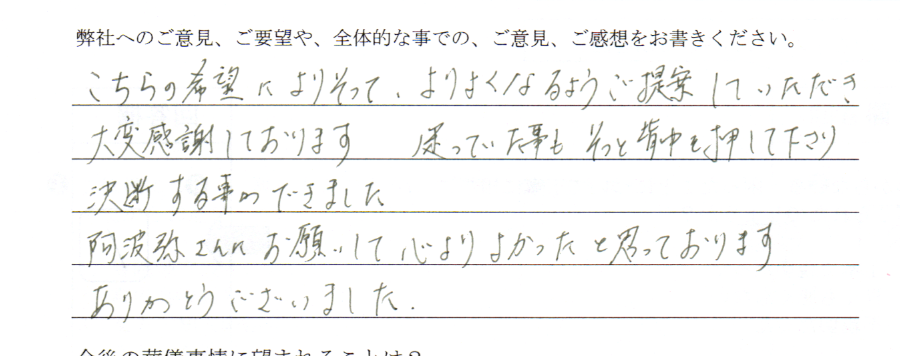 弊社へのご意見、ご要望や、全体的な事での、ご意見、ご感想をお書きください。
こちらの希望によりそって、よりよくなるようご提案していただき
大変感謝しております 迷っていた事も そっと背中を押して下さり
決断する事ができました
阿波弥さんに お願いして 心より よかったと思っております
ありがとうございました.
今後の葬儀事情に望まれることは？